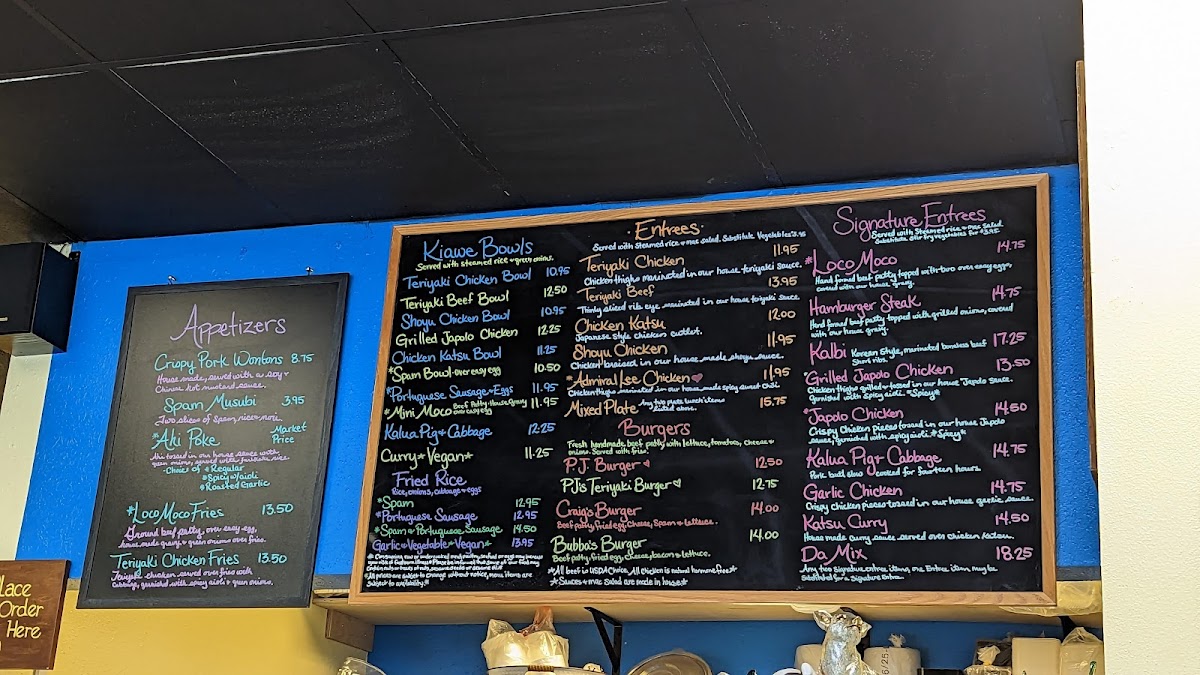 Appetizers
Crispy Pork Wontons 8.75
House made, served with a soy &
Chinese hot mustard sauce.
Spam Musubi 3.95
Two slices of Spam, rice & nori.
*Ahi Poke Market Price
Ahi tossed in our house sauce with
green onions, served with furikake rice.
-Choice of • Regular
• Spicy w/aioli
• Roasted Garlic
*Loco Moco Fries 13.50
Ground beef patty, over easy egg,
house made gravy & green onions over fries.
Teriyaki Chicken Fries 13.50
Teriyaki chicken served over fries with
cabbage, garnished with spicy aioli & green onions.
Place
Order
Here
Kiawe Bowls
Served with steamed rice & green onions.
Teriyaki Chicken Bowl 10.95
Teriyaki Beef Bowl 12.50
Shoyu Chicken Bowl 10.95
Grilled Japolo Chicken 12.25
Chicken Katsu Bowl 11.25
*Spam Bowl-over easy egg 10.50
*Portuguese Sausage & Eggs 11.95
*Mini Moco Beef Patty, House Gravy over easy egg 11.95
Kalua Pig & Cabbage 12.25
Curry *Vegan* 11.25
Fried Rice
Rice, onions, cabbage & eggs
*Spam 12.95
*Portuguese Sausage 12.95
*Spam & Portuguese Sausage 14.50
Garlic & Vegetable *Vegan* 13.95
*Consuming raw or undercooked meats, poultry, seafood or eggs may increase
your risk of foodborne illness.
*All prices are subject to change without notice, menu items are
subject to availability.
Entrees
Served with Steamed rice & mac salad. Substitute Vegetables
Teriyaki Chicken 11.95
Chicken thighs marinated in our house teriyaki sauce.
Teriyaki Beef 13.95
Thinly sliced rib eye marinated in our house teriyaki sauce
Chicken Katsu 12.00
Japanese style chicken cutlet.
Shoyu Chicken 11.95
Chicken braised in our house made shoyu sauce.
*Admiral Lse Chicken 11.95
Chicken thighs marinated in our house made spicy sweet chili
Mixed Plate Any two plate lunch items listed above. 15.75
Burgers
Fresh handmade beef patty with lettuce, tomatoes, cheese &
onions. Served with fries.
P.J. Burger 12.50
PJ's Teriyaki Burger 12.75
Craig's Burger 14.00
Beef patty, fried egg, cheese, Spam & lettuce.
Bubba's Burger 14.00
Beef patty, fried egg, cheese, bacon & lettuce.
*All beef is USDA Choice. All Chicken is natural hormone free*
*Sauces & mac Salad are made in house*
Signature Entrees
Served with Steamed rice & mac Salad.
Substitute stir fry vegetables for $3.95
*Loco Moco 14.75
Hand formed beef patty topped with two over easy eggs,
covered with our house gravy.
Hamburger Steak 14.75
Hand formed beef patty topped with grilled onions, covered
with our house gravy.
Kalbi Korean style, marinated boneless beef Short ribs. 17.25
*Grilled Japolo Chicken 13.50
Chicken thighs grilled & tossed in our house Japolo sauce.
Garnished with spicy aioli. *Spicy*
*Japolo Chicken 14.50
Crispy Chicken pieces tossed in our house Japolo
sauce, garnished with spicy aioli. *Spicy*
Kalua Pig & Cabbage 14.75
Pork butt slow cooked for fourteen hours.
Garlic Chicken 14.75
Crispy chicken pieces tossed in our house garlic sauce.
Katsu Curry 14.50
House made curry sauce served over chicken katsu.
Da Mix 18.25
Any two signature entree items, one Entree item may be
Substituted for a Signature Entree.